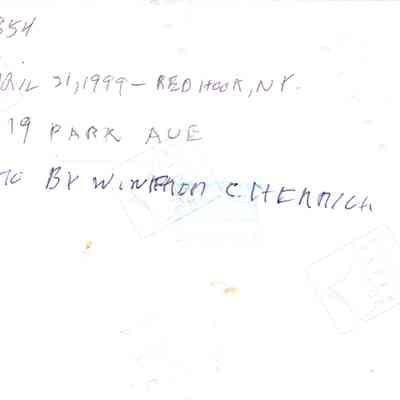 354
RIL 21, 1999 – RED HOOK, N.Y.
19 PARK AVE
TO BY C. HERRICH